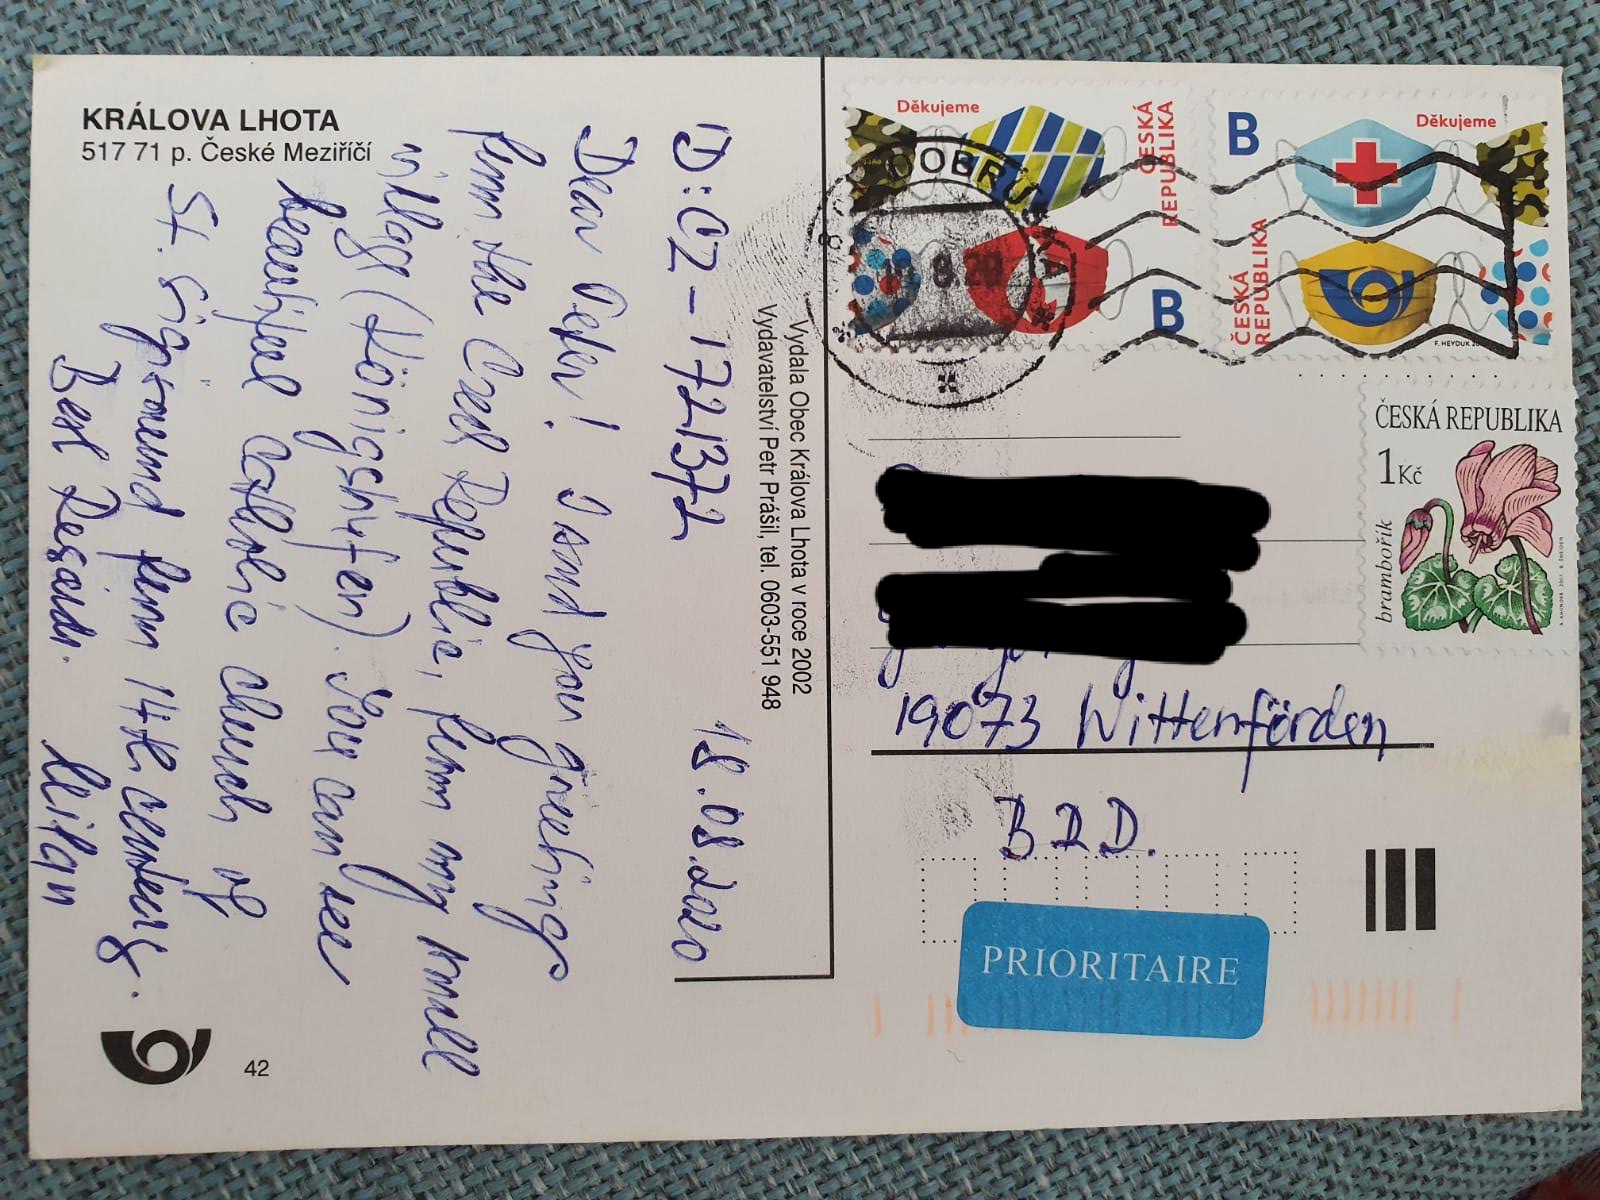 KRÁLOVA LHOTA
517 71 p. České Meziříčí
ID: CZ-1721372
18.08.2020
Dear Peter! I send you greetings
from the Czech Republic, from my small
village (Königshufen). You can see
beautiful catholic church of
St. Sigismund from 14th century.
Best Regards. Milan
Vydala Obec Králova Lhota v roce 2002
Vydavatelství Petr Prášil, tel. 0603-551 948
42
Děkujeme
ČESKÁ
REPUBLIKA
B
B
Děkujeme
ČESKÁ
REPUBLIKA
F. HEYDUK
DOBRUŠKA
ČESKÁ REPUBLIKA
1 Kč
brambořík
19073 Wittenförden
BRD.
PRIORITAIRE